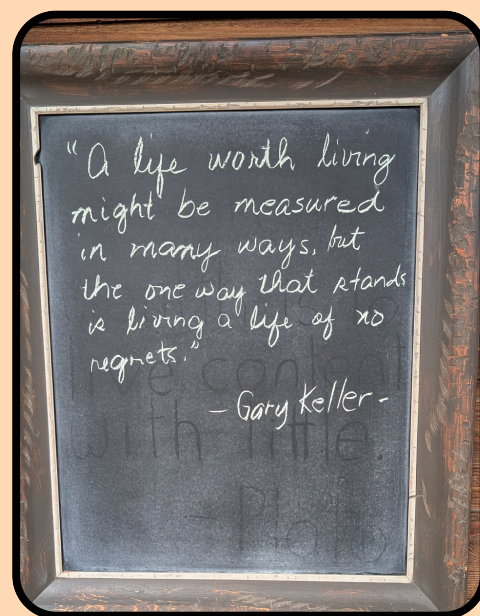 "A life worth living
might be measured
in many ways, but
the one way that stands
is living a life of no
regrets."
- Gary Keller -
live content
with little.
- Plato